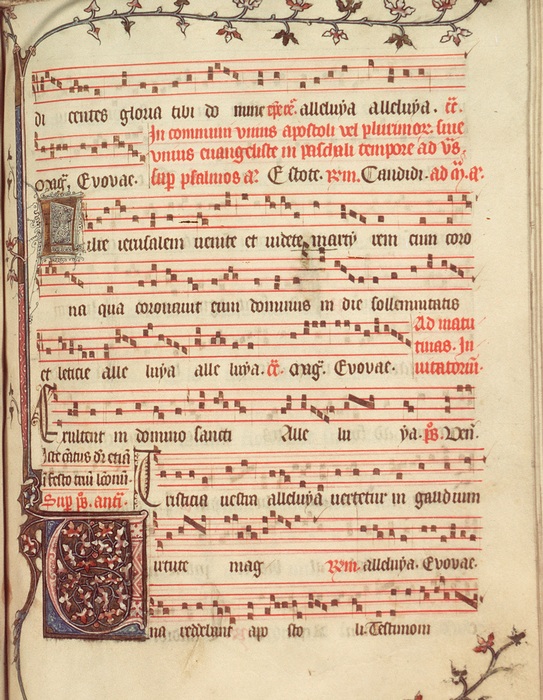 di centes gloria tibi do mine alleluya alleluya.
In communi unius apostoli vel plurimor. siue
unius euangeliste in paschali tempore ad vs.
mag. Evovae. sup psalmos a. Estote. Rm. Candidi. ad m. a.
Filie ierusalem uenite et uidete marty rem cum coro
na qua coronauit eum dominus in die sollemnitatis
et leticie alle luya alle luya. mag. Evovae. Ad matu
tinas. In
uitatorium.
Exultent in domino sancti Alle lu ya. ps. Ven.
Sup ps. ant.
Tristicia uestra alleluya uertetur in gaudium
uirtute mag Rm. alleluya. Evovae.
na reddebant apo sto li. Testimoni